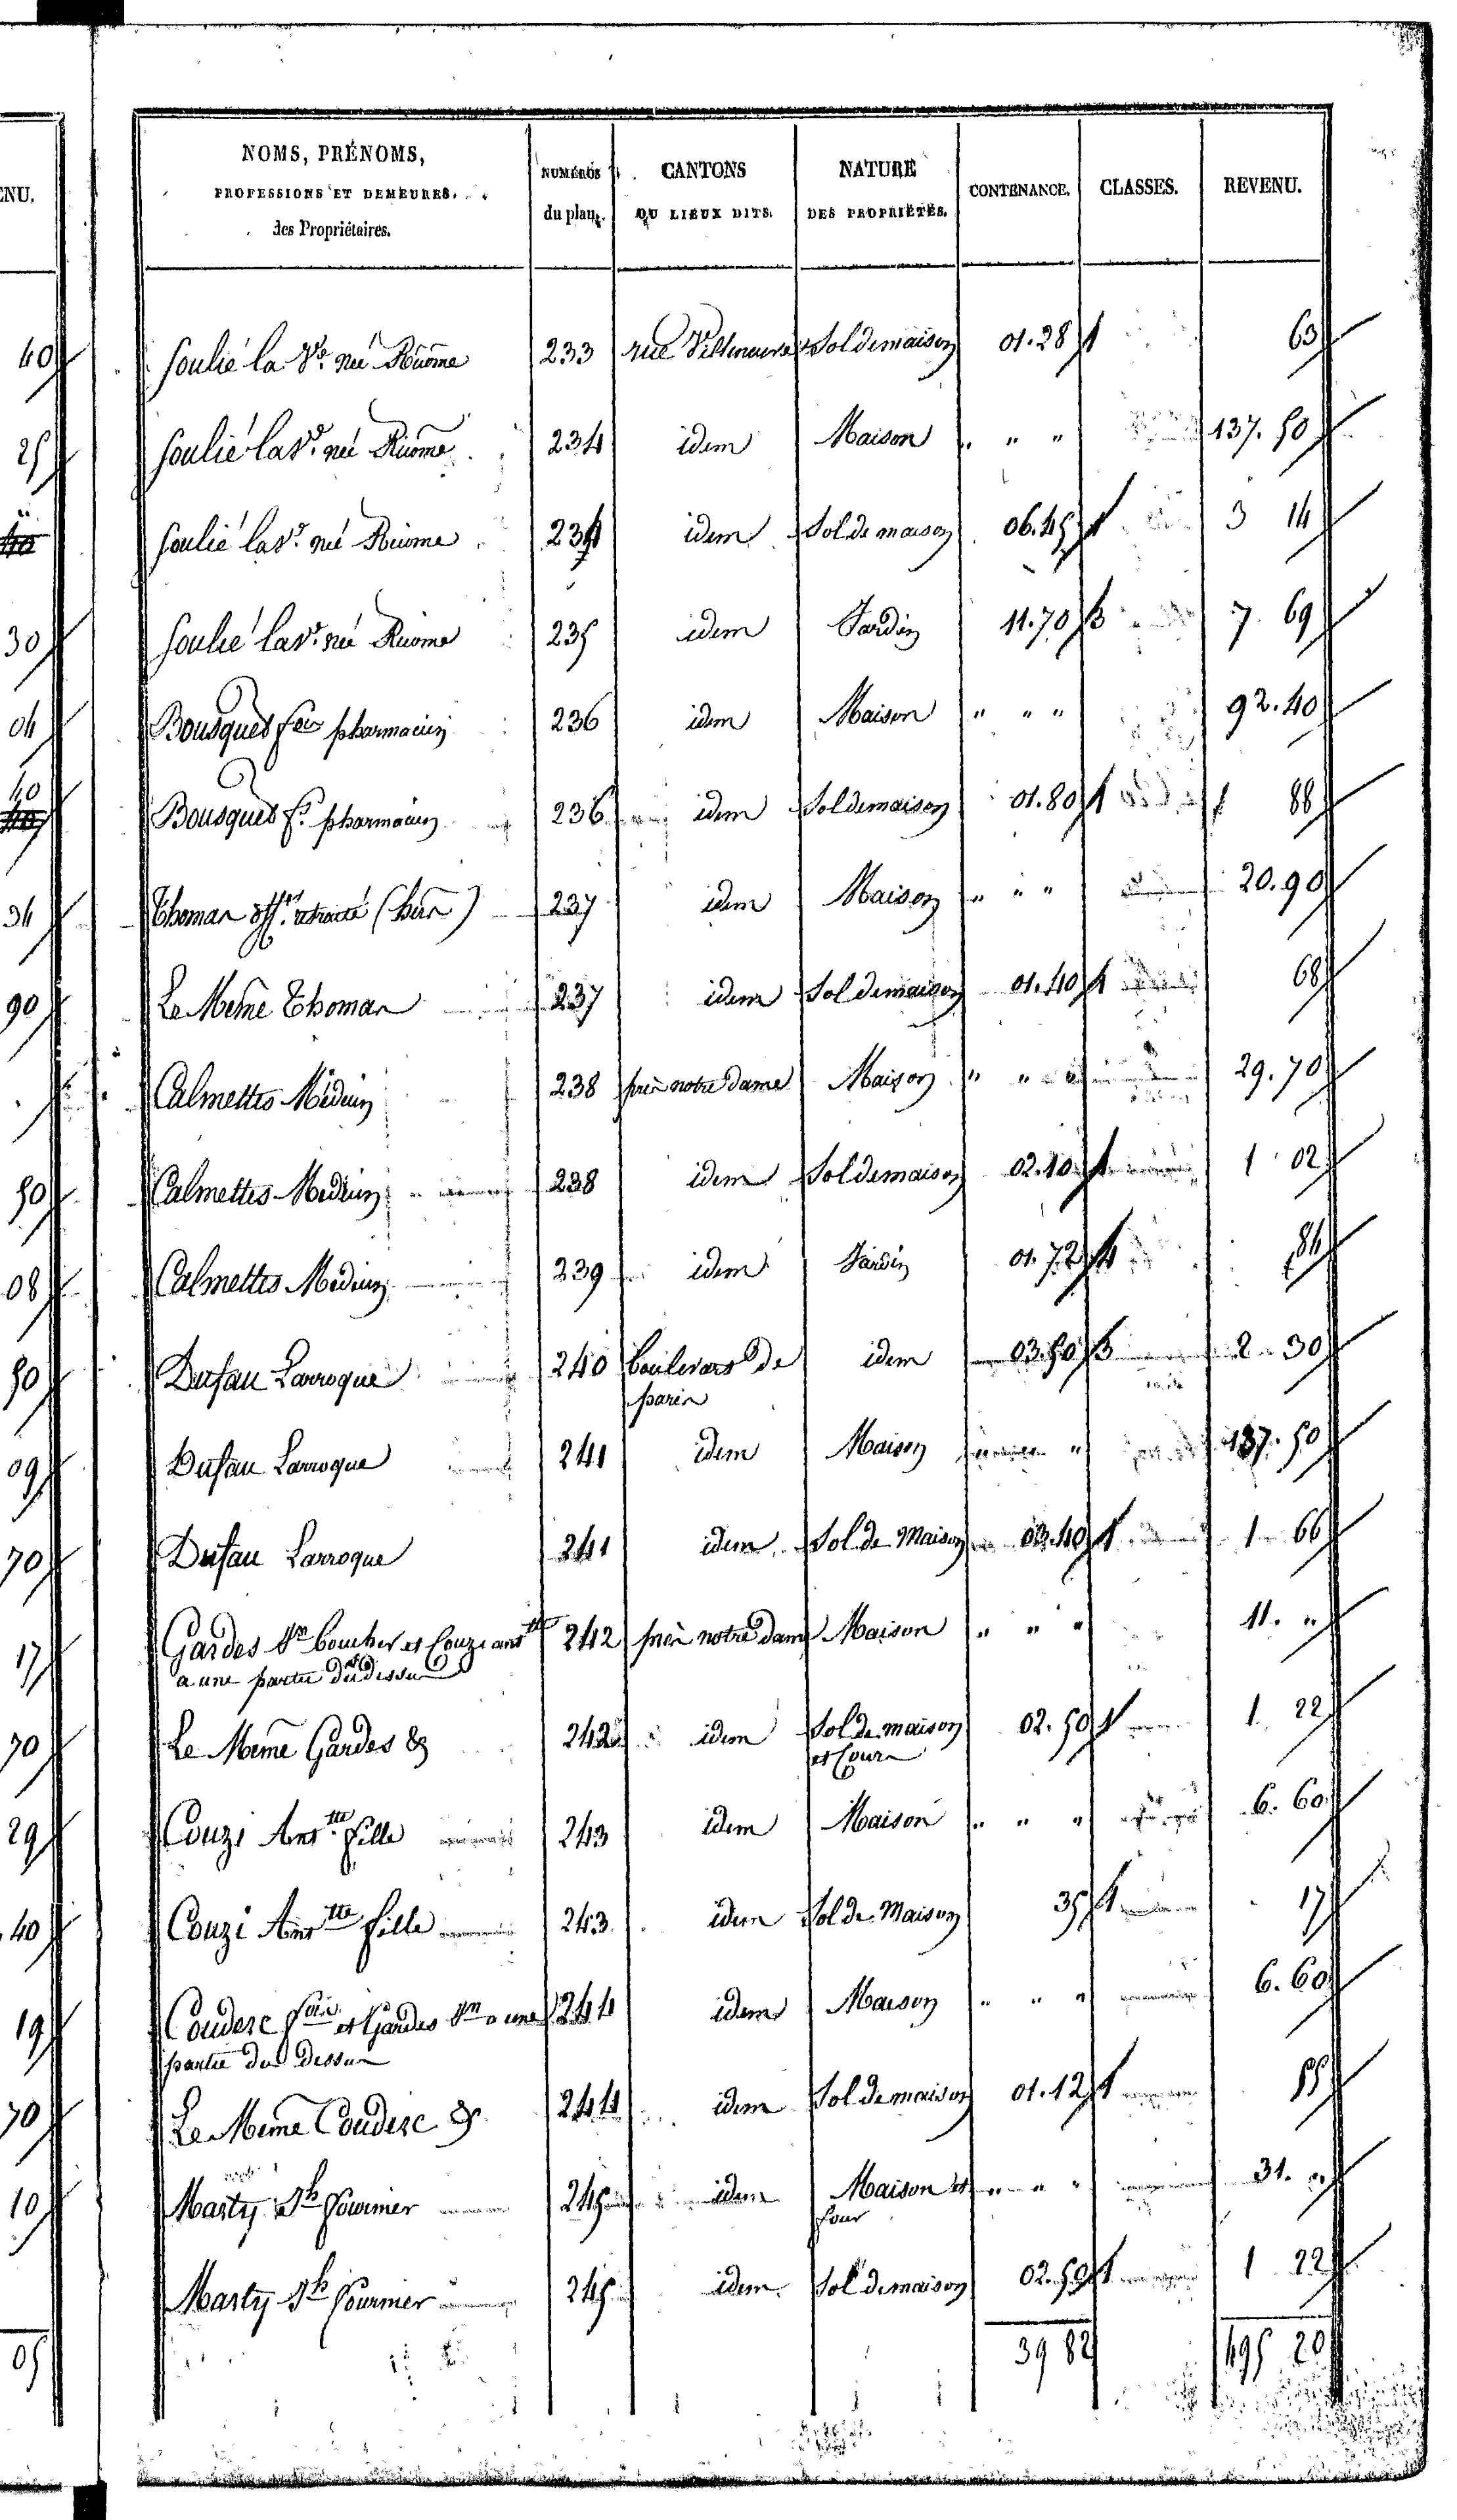 NOMS, PRÉNOMS,
PROFESSIONS ET DEMEURES.
des Propriétaires.
NUMÉROS
du plan.
CANTONS
OU LIEUX DITS.
NATURE
DES PROPRIÉTÉS.
CONTENANCE.
CLASSES.
REVENU.
Soulié la Ve. né Riüome 233 rue Villeneuve Sol de maison 01.28 1 63
Soulié la Ve. né Riüome 234 idem Maison " " " 137.50
Soulié la Ve. né Riüome 234 idem Sol de maison 06.45 1 3 14
Soulié la Ve. né Riüome 235 idem Jardin 11.70 3 7 69
Bousquet pharmacien 236 idem Maison " " " 92.40
Bousquet pharmacien 236 idem Sol de maison 01.80 1 88
Thomas offer. retraité 237 idem Maison " " " 20.90
Le Meme Thomas 237 idem Sol de maison 01.40 1 68
Calmettes Médecin 238 près notre dame Maison " " " 29.70
Calmettes Medecin 238 idem Sol de maison 02.10 1 1 02
Calmettes Medecin 239 idem Jardin 01.72 4 84
Dufau Larroque 240 boulevars de idem 03.50 3 2 30
paris
Dufau Larroque 241 idem Maison " 137.50
Dufau Larroque 241 idem Sol de Maison 03.40 1 1 66
Gardes boucher et Couzi 242 près notre dame Maison " " " 11. "
a une partie du dessus
Le Meme Gardes & 242 idem Sol de maison 02.50 1 1. 22
et Cour
Couzi Antte fille 243 idem Maison " " " 6.60
Couzi Antte fille 243 idem Sol de Maison 35 1 17
Couderc et Gardes a une 244 idem Maison " " " 6.60
partie du dessus
Le Meme Couderc & 244 idem Sol de maison 01.12 1 55
Marty Jh Fournier 245 idem Maison et " " " 31. "
four
Marty Jh Fournier 245 idem Sol de maison 02.50 1 1 22
39 82 495 20